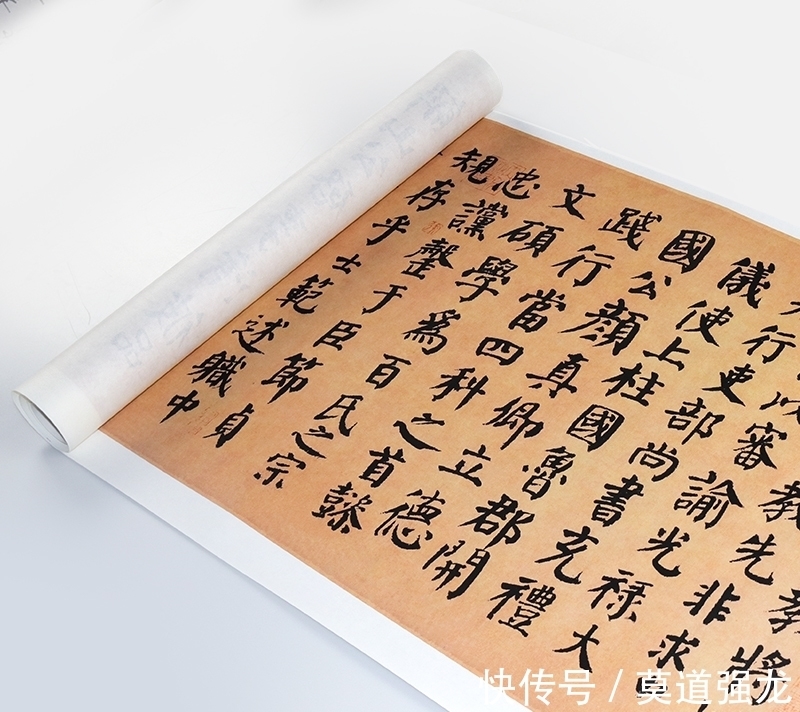 教將
教先非求
以審諭光祿大
行吏部尚書充禮
儀使上柱國魯郡開
國公顏真卿立德
踐行當四科之首懿
文碩學為百氏之宗
忠讜罄于臣節貞
規存乎士範述職中
快传号 / 莫道强龙